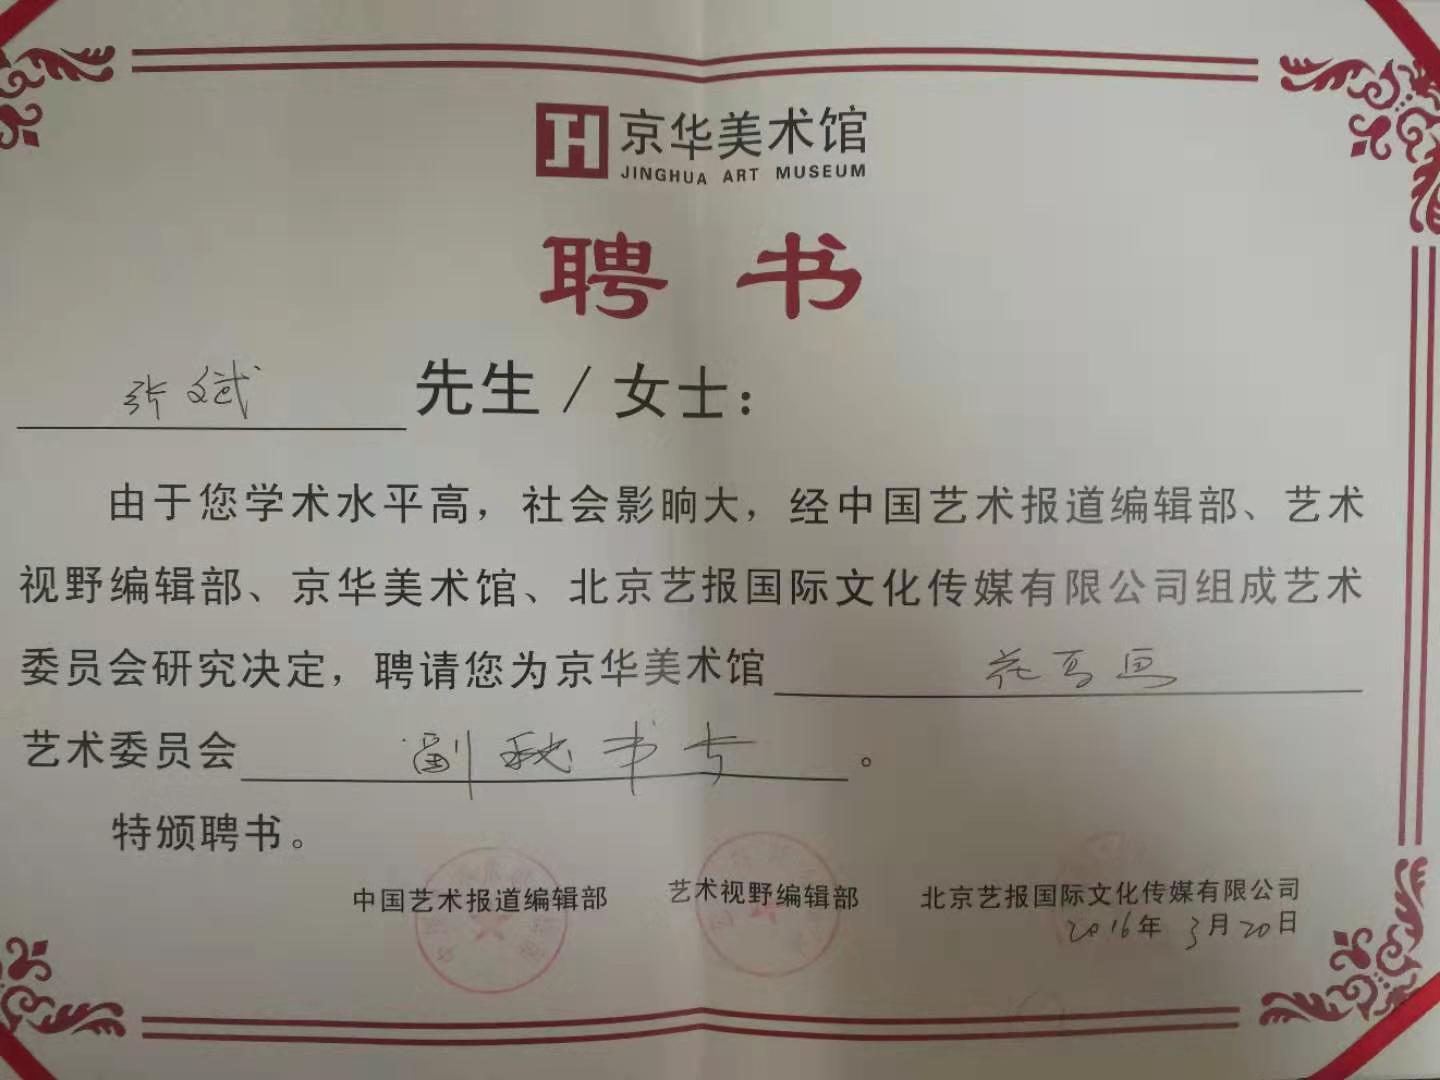 京华美术馆
JINGHUA ART MUSEUM
聘书
张斌 先生 / 女士：
由于您学术水平高，社会影响大，经中国艺术报道编辑部、艺术
视野编辑部、京华美术馆、北京艺报国际文化传媒有限公司组成艺术
委员会研究决定，聘请您为京华美术馆 花鸟画
艺术委员会 副秘书长 。
特颁聘书。
中国艺术报道编辑部 艺术视野编辑部 北京艺报国际文化传媒有限公司
2016年 3月20日